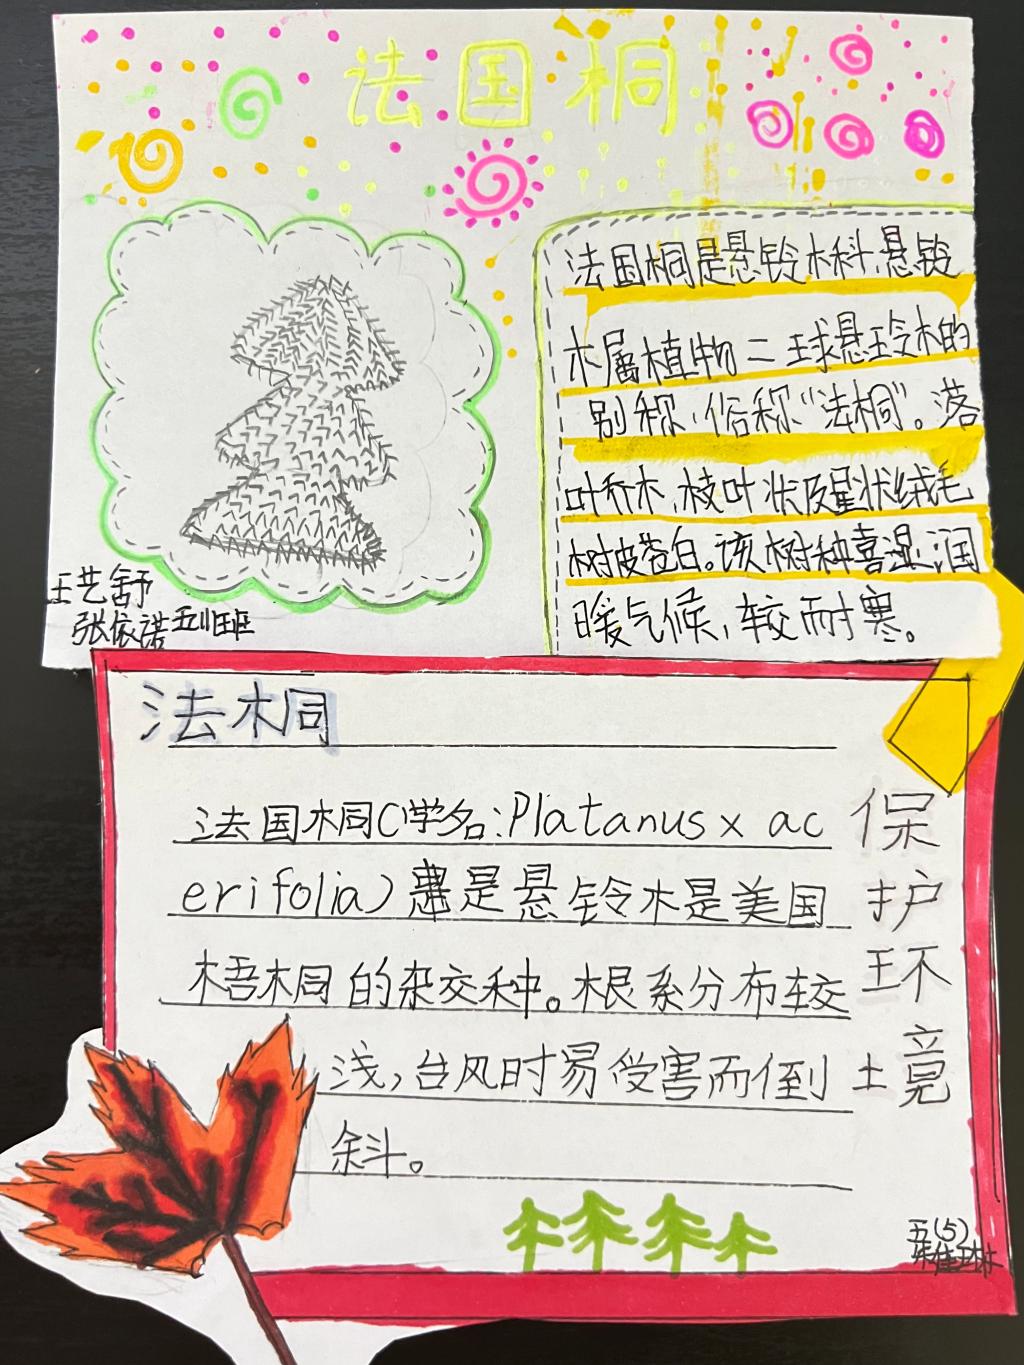 法国桐
法国桐是悬铃木科、悬铃
木属植物二球悬玲木的
别称,俗称“法桐”。落
叶乔木,枝叶状及星状绒毛
树皮苍白。该树种喜湿润
暖气候,较耐寒。
王艺舒
张依诺 五班
法桐
法国桐(学名:Platanus x ac
erifolia)是悬铃木是美国
梧桐的杂交种。根系分布较
浅,台风时易受害而倒
余斗。
保护环境
五(5)